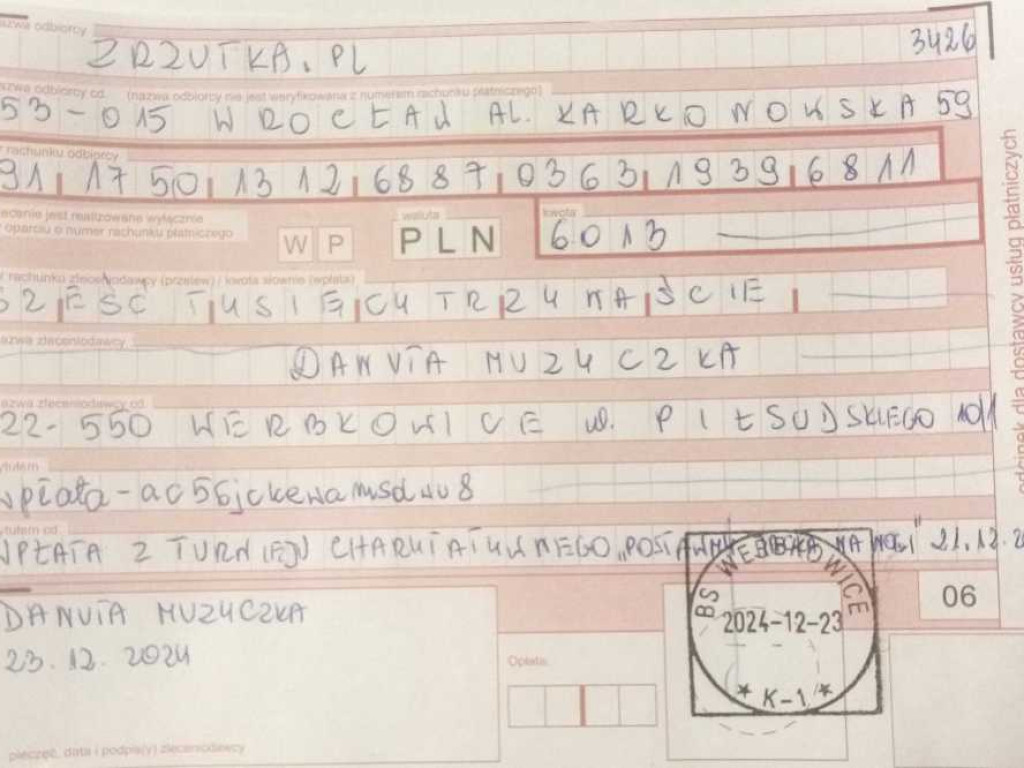 azwa odbiorcy
ZRZUTKA.PL 3426
azwa odbiorcy cd. (nazwa odbiorcy nie jest weryfikowana z numerem rachunku płatniczego)
53-015 WROCŁAW AL. KARKONOWSKA 59
r rachunku odbiorcy
91 1750 1312 6887 0363 1939 6811
ecenie jest realizowane wyłącznie
oparciu o numer rachunku płatniczego
WP
waluta
PLN
kwota
6013
r rachunku zleceniodawcy (przelew) / kwota słownie (wpłata)
SZEŚĆ TYSIĘCY TRZYNAŚCIE
azwa zleceniodawcy
DANUTA MUZYCZKA
azwa zleceniodawcy cd.
22-550 WERBKOWICE ul. PIŁSUDSKIEGO
ytułem
wpłata -
ytułem cd.
WPŁATA Z TURNIEJU CHARYTATYWNEGO „POSTAWMY NA NOGI" 21.12.2
DANUTA MUZYCZKA
23.12.2024
pieczęć, data i podpis(y) zleceniodawcy
Opłata:
BS WERBKOWICE
2024-12-23
* K-1 *
06
odcinek dla dostawcy usług płatniczych